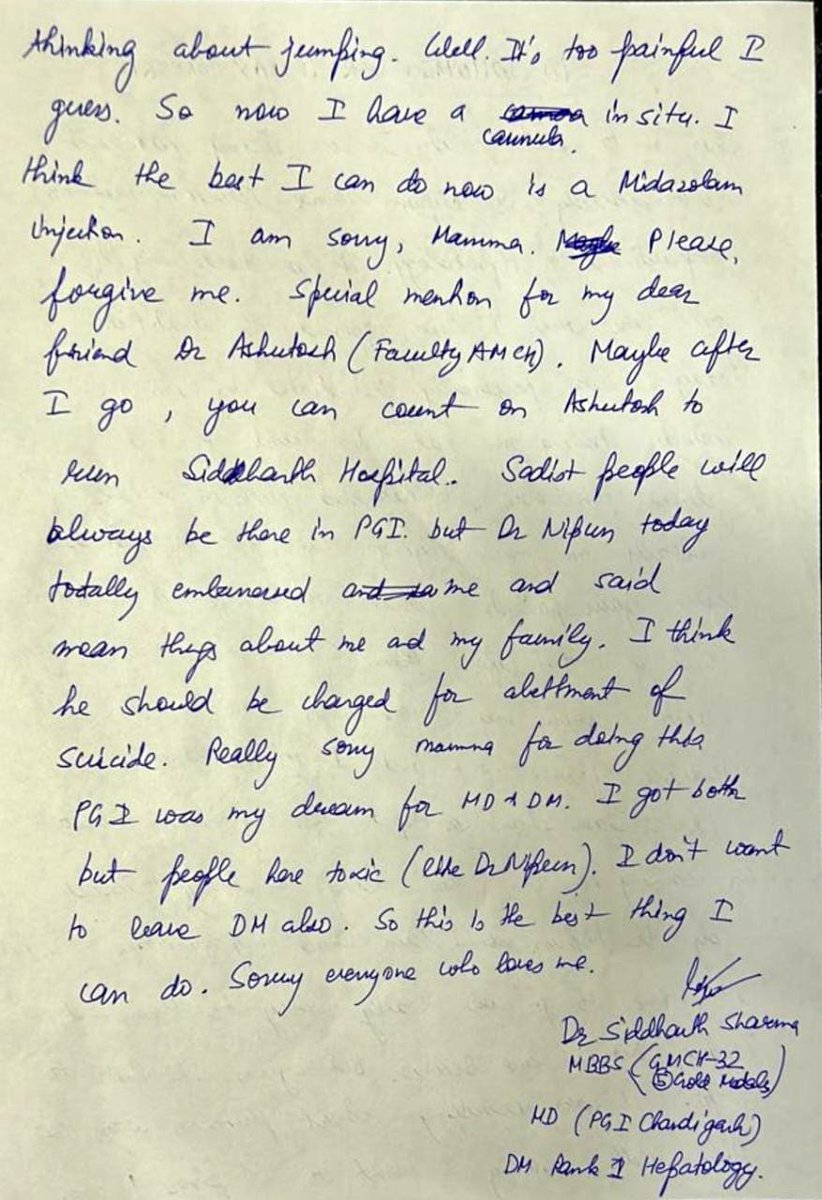 thinking about jumping. Well. It's too painful I
guess. So now I have a in situ. I
cannula.
think the best I can do now is a Midazolam
Injection. I am sorry, Mamma. Please,
forgive me. Special mention for my dear
friend Dr Ashutosh (Faculty AMCH). Maybe after
I go, you can count on Ashutosh to
run Siddharth Hospital. Sadist people will
always be there in PGI. but Dr Nipun today
totally embarrased me and said
mean thigs about me ad my family. I think
he should be charged for abettment of
suicide. Really sorry mamma for doing this
PGI was my dream for MD & DM. I got both
but people here toxic (like Dr Nipun). I don't want
to leave DM also. So this is the best thing I
can do. Sorry everyone who loves me.
Dr Siddharth Sharma
MBBS (GMCH-32
⑤ Gold Medals)
MD (PGI Chandigarh)
DM Rank 1 Hepatology.